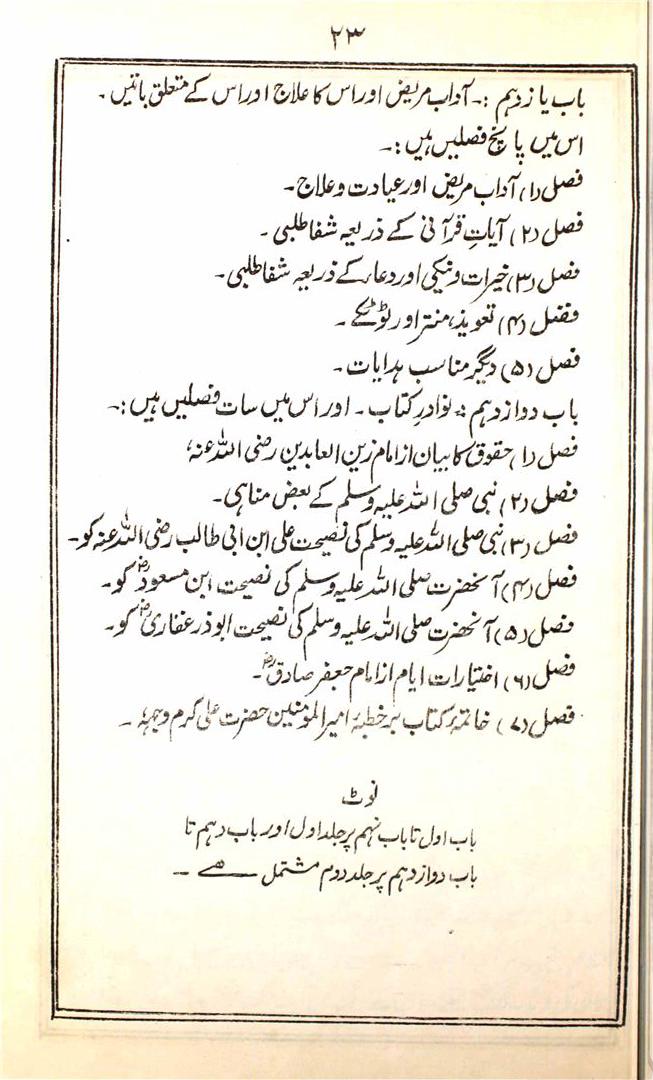 ۲۳
باب یازدہم :۔ آداب مریض اور اس کا علاج اور اس کے متعلق باتیں ۔
اس میں پانچ فصلیں ہیں :۔
فصل (۱) آداب مریض اور عیادت و علاج ۔
فصل (۲) آیاتِ قرآنی کے ذریعہ شفا طلبی ۔
فصل (۳) خیرات و نیکی اور دعاء کے ذریعہ شفا طلبی ۔
فصل (۴) تعویذ، منتر اور ٹوٹکے ۔
فصل (۵) دیگر مناسب ہدایات ۔
باب دوازدہم :۔ نوادرِ کتاب ۔ اور اس میں سات فصلیں ہیں :۔
فصل (۱) حقوق کا بیان از امام زین العابدین رضی اللہ عنہ،
فصل (۲) نبی صلی اللہ علیہ وسلم کے بعض مناہی ۔
فصل (۳) نبی صلی اللہ علیہ وسلم کی نصیحت علی ابن ابی طالب رضی اللہ عنہ کو ۔
فصل (۴) آنحضرت صلی اللہ علیہ وسلم کی نصیحت ابن مسعودؓ کو ۔
فصل (۵) آنحضرت صلی اللہ علیہ وسلم کی نصیحت ابوذر غفاریؓ کو ۔
فصل (۶) اختیارات ایام از امام جعفر صادقؓ ۔
فصل (۷) خاتمۂ کتاب بر خطبۂ امیر المومنین حضرت علی کرم وجہہٗ ۔
نوٹ
باب اول تا باب نہم پر جلد اول اور باب دہم تا
باب دوازدہم پر جلد دوم مشتمل ھے ۔